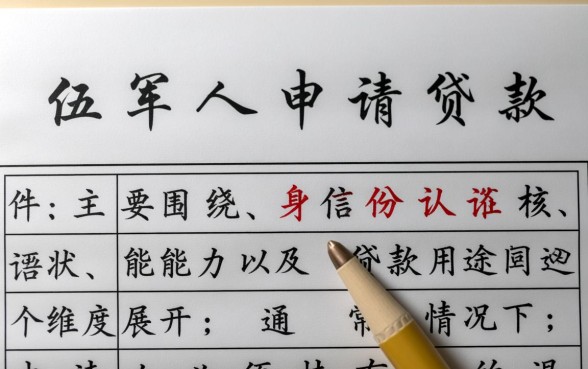 伍军人申请贷款
件;主要围绕、身信份认谁核、
语状、能能力以及贷款用途
个维度展开;通常情况下;